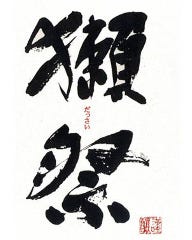 獺祭
だっさい